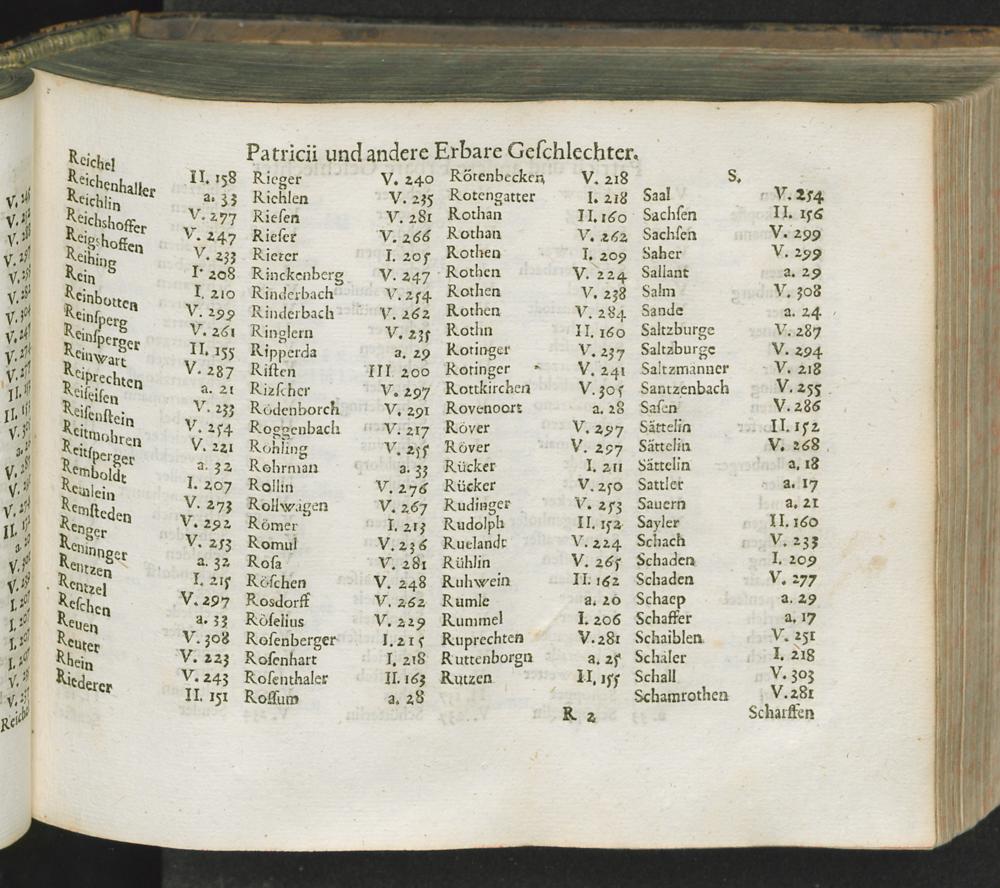 Patricii und andere Erbare Geſchlechter.
Reichel II. 158
Reichenhaller a. 33
Reichlin V. 277
Reichshoffer V. 247
Reigshoffen V. 233
Reihing I. 208
Rein I. 210
Reinbotten V. 299
Reinſperg V. 261
Reinſperger II. 155
Reinwart V. 287
Reiprechten a. 21
Reiſeiſen V. 233
Reiſenſtein V. 254
Reitmohren V. 221
Reitſperger a. 32
Remboldt I. 207
Remlein V. 273
Remſteden V. 292
Renger V. 253
Reninnger a. 32
Rentzen I. 215
Rentzel V. 297
Reſchen a. 33
Reuen V. 308
Reuter V. 223
Rhein V. 243
Riederer II. 151
Rieger V. 240
Riehlen V. 235
Rieſen V. 281
Rieſer V. 266
Rieter I. 205
Rinckenberg V. 247
Rinderbach V. 254
Rinderbach V. 262
Ringlern V. 235
Ripperda a. 29
Riſten III. 200
Rizſcher V. 297
Rodenborch V. 291
Roggenbach V. 217
Rohling V. 255
Rohrman a. 33
Rollin V. 276
Rollwagen V. 267
Römer I. 213
Romul V. 236
Roſa V. 281
Röſchen V. 248
Rosdorff V. 262
Röſelius V. 229
Roſenberger I. 215
Roſenhart I. 218
Roſenthaler II. 163
Roſſum a. 28
Rötenbecken V. 218
Rotengatter I. 218
Rothan II. 160
Rothan V. 262
Rothen I. 209
Rothen V. 224
Rothen V. 238
Rothen V. 284
Rothn II. 160
Rotinger V. 237
Rotinger V. 241
Rottkirchen V. 305
Rovenoort a. 28
Röver V. 297
Röver V. 297
Rücker I. 211
Rücker V. 250
Rudinger V. 253
Rudolph II. 152
Ruelandt V. 224
Rühlin V. 265
Ruhwein II. 162
Rumle a. 20
Rummel I. 206
Ruprechten V. 281
Ruttenborgn a. 25
Rutzen II. 155
S.
Saal V. 254
Sachſen II. 156
Sachſen V. 299
Saher V. 299
Sallant a. 29
Salm V. 308
Sande a. 24
Saltzburge V. 287
Saltzburge V. 294
Saltzmänner V. 218
Santzenbach V. 255
Saſen V. 286
Sättelin II. 152
Sättelin V. 268
Sättelin a. 18
Sattler a. 17
Sauern a. 21
Sayler II. 160
Schach V. 233
Schaden I. 209
Schaden V. 277
Schaep a. 29
Schaffer a. 17
Schaiblen V. 251
Schäler I. 218
Schall V. 303
Schamrothen V. 281
R 2 Scharffen